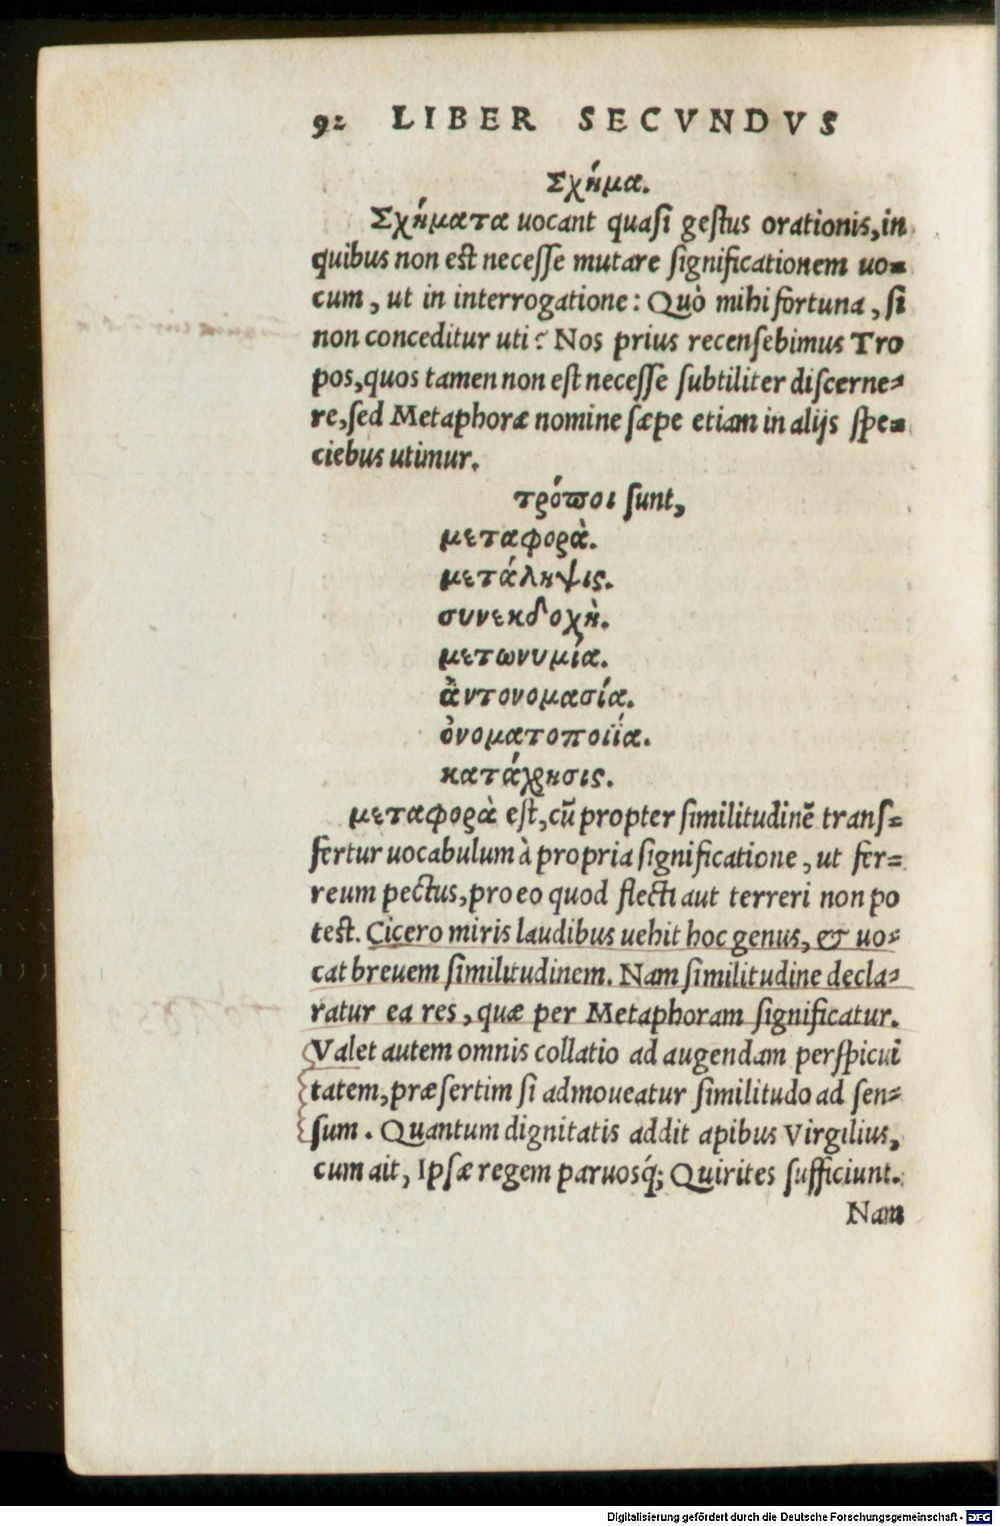 92 LIBER SECVNDVS
Σχῆμα.
Σχήματα uocant quasi gestus orationis, in
quibus non est necesse mutare significationem uo=
cum, ut in interrogatione: Quò mihi fortuna, si
non conceditur uti? Nos prius recensebimus Tro
pos, quos tamen non est necesse subtiliter discerne=
re, sed Metaphoræ nomine sæpe etiam in alijs spe=
ciebus utimur.
τρόποι sunt,
μεταφορὰ.
μετάληψις.
συνεκδοχὴ.
μετωνυμία.
ἀντονομασία.
ὀνοματοποιΐα.
κατάχρησις.
μεταφορὰ est, cũ propter similitudinẽ trans=
fertur uocabulum à propria significatione, ut fer=
reum pectus, pro eo quod flecti aut terreri non po
test. Cicero miris laudibus uehit hoc genus, & uo=
cat breuem similitudinem. Nam similitudine decla=
ratur ea res, quæ per Metaphoram significatur.
Valet autem omnis collatio ad augendam perspicui
tatem, præsertim si admoueatur similitudo ad sen=
sum. Quantum dignitatis addit apibus Virgilius,
cum ait, Ipsæ regem paruosq́; Quirites sufficiunt.
Nam
Digitalisierung gefördert durch die Deutsche Forschungsgemeinschaft - DFG